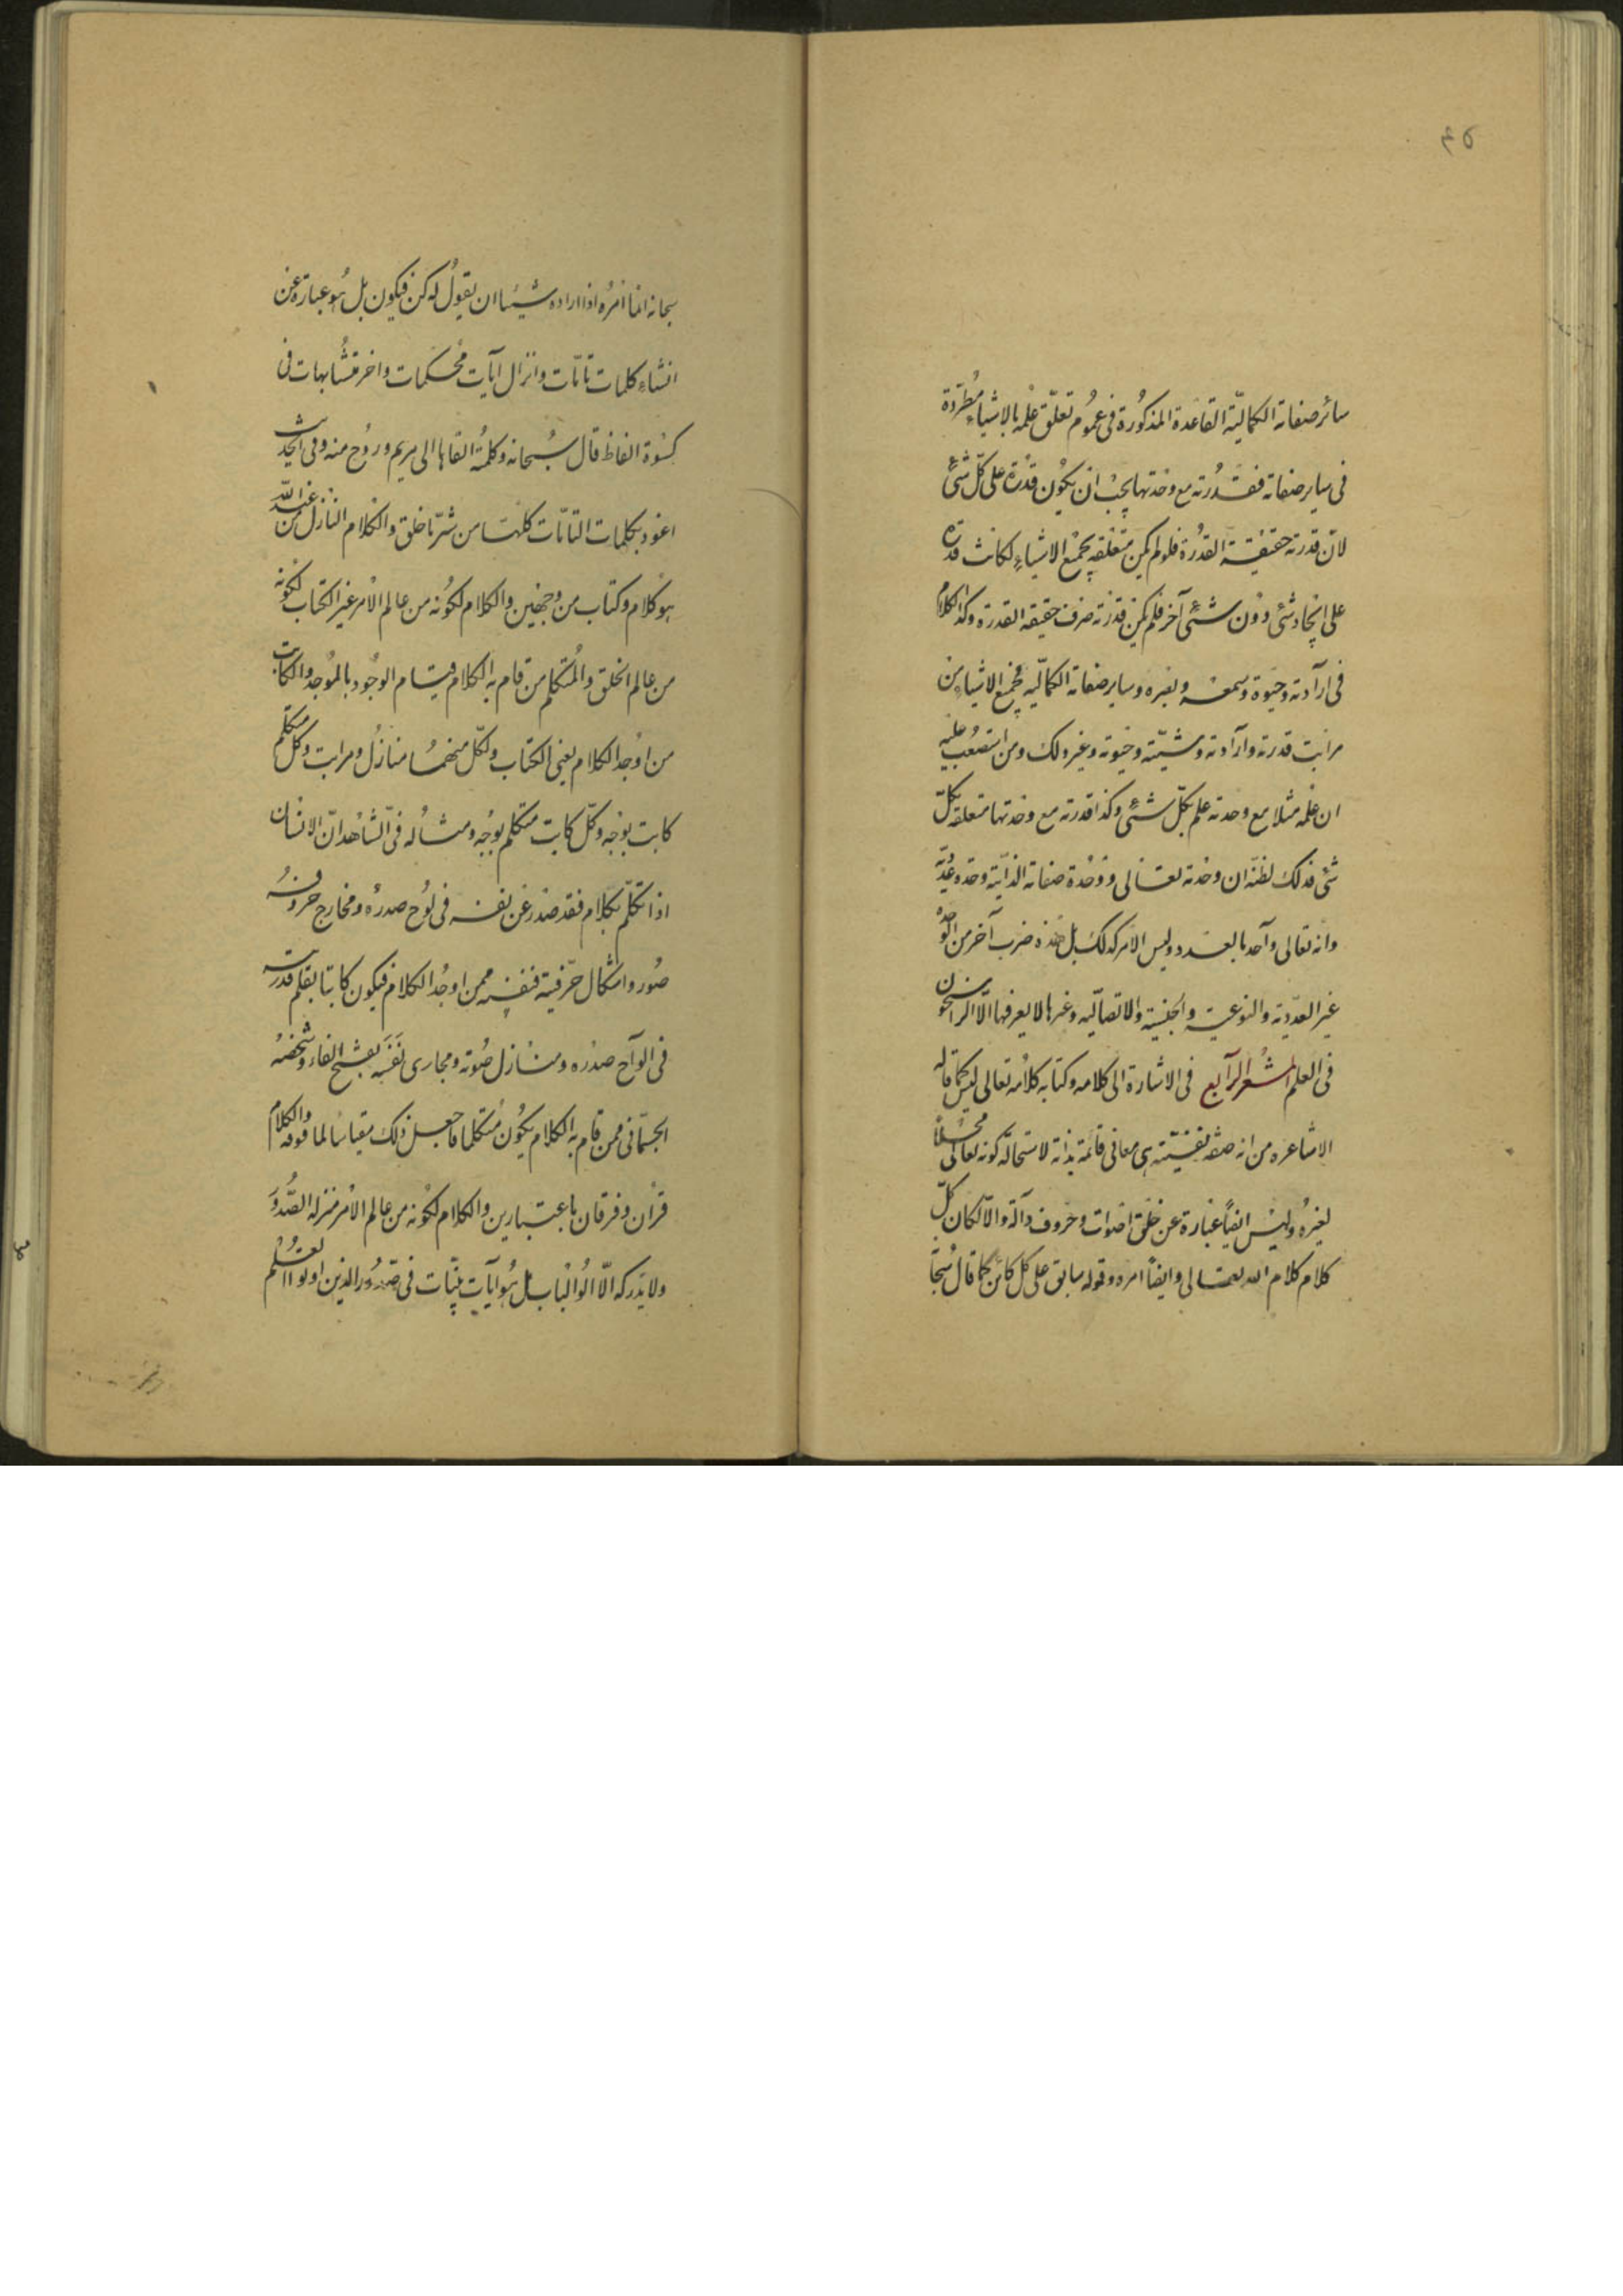 ٤٥
سائر صفاته الكماليّه القاعدة المذكورة فى عموم تعلّق علمه بالاشياء مطّردة
فى ساير صفاته فقدرته مع وحدتها يجب ان يكون قدرة على كلّ شئ
لانّ قدرته حقيقة القدرة فلو لم يكن متعلقه بجميع الاشياء لكانت قدرة
على ايجاد شئ دون شئ آخر فلم يكن قدرته صرف حقيقه القدرة وكذا الكلام
فى ارادته وحيوة وسمعه وبصره وساير صفاته الكماّليه فجميع الاشياء من
مراتب قدرته وارادته ومشيّته وحيوته وغير ذلك ومن استصعب عليه
ان علمه مثلا مع وحدته علم بكلّ شئ وكذا قدرته مع وحدتها متعلقه بكلّ
شئ فذلك لظنّه ان وحدته تعالى ووحدة صفاته الذاتيّه وحده عدديّه
وانه تعالى واحد بالعدد وليس الامر كذلك بل هذه ضرب آخر من الوحده
غير العدّديّه والنوعيه والجنسيه والاتصاليّه وغيرها لا يعرفها الّا الراسخون
فى العلم المشعر الرّابع فى الاشارة الى كلامه وكتابه كلامه تعالى ليس كما قاله
الاشاعره من انه صفه نفسيّته هى معانى قائمة بذاته لاستحالة كونه تعالى محلاً
لغيره وليس ايضاً عبارة عن خلق اصوات وحروف دآلة والّا لكان كلّ
كلام كلام الله تعالى وايضاً امره وقوله سابق على كل كائن كما قال سبحا
سبحانه انما امره اذا اراده شيئا ان يقول له كن فيكون بل هو عبارة عن
انشاء كلمات تامّات وانزال آيات محكمات واخر متشابهات فى
كسوة الفاظ قال سبحانه وكلمته القاها الى مريم وروح منه وفى الحديث
اعوذ بكلمات التامّات كلّها من شرّ ما خلق والكلام النازل من عند اللّه
هو كلام وكتاب من وجهين والكلام لكونه من عالم الامر غير الكتاب لكونه
من عالم الخلق والمتكلم من قام به الكلام قيام الوجود بالموجد والكاتب
من اوجد الكلام يعنى الكتاب ولكل منهما منازل ومراتب وكل متكلم
كاتب بوجه وكلّ كاتب متكلم بوجه ومثاله فى الشاهد انّ الانسان
اذا تكلّم بكلام فقد صدر عن نفسه فى لوح صدره ومخارج حروفه
صور واشكال حرّفية فنفسه ممن اوجد الكلام فيكون كاتبا بقلم قدرته
فى الواح صدره ومنازل صوته ومجارى نَفَسِه بفتح الفاء وشخصه
الجسمانى ممن قام به الكلام يكون متكلما فاجعل ذلك مقياسا لما فوقه والكلام
قرآن وفرقان باعتبارين والكلام لكونه من عالم الامر منزله الصدور
ولا يدركه الّا اولو الالباب بل هو آيات بيّنات فى صدور الذين اوتوا العلم